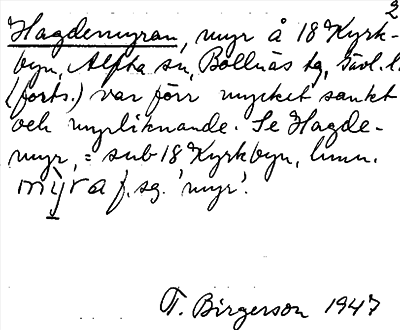 2
Hagdemyran, myr å 18 Kyrk-
byn, Alfta sn, Bollnäs tg, Gävl. l.
(forts.) var förr mycket sankt
och myrliknande. Se Hagde-
myr, = sub 18 Kyrkbyn,
mỳra f. sg. 'myr'.
T. Birgerson 1947